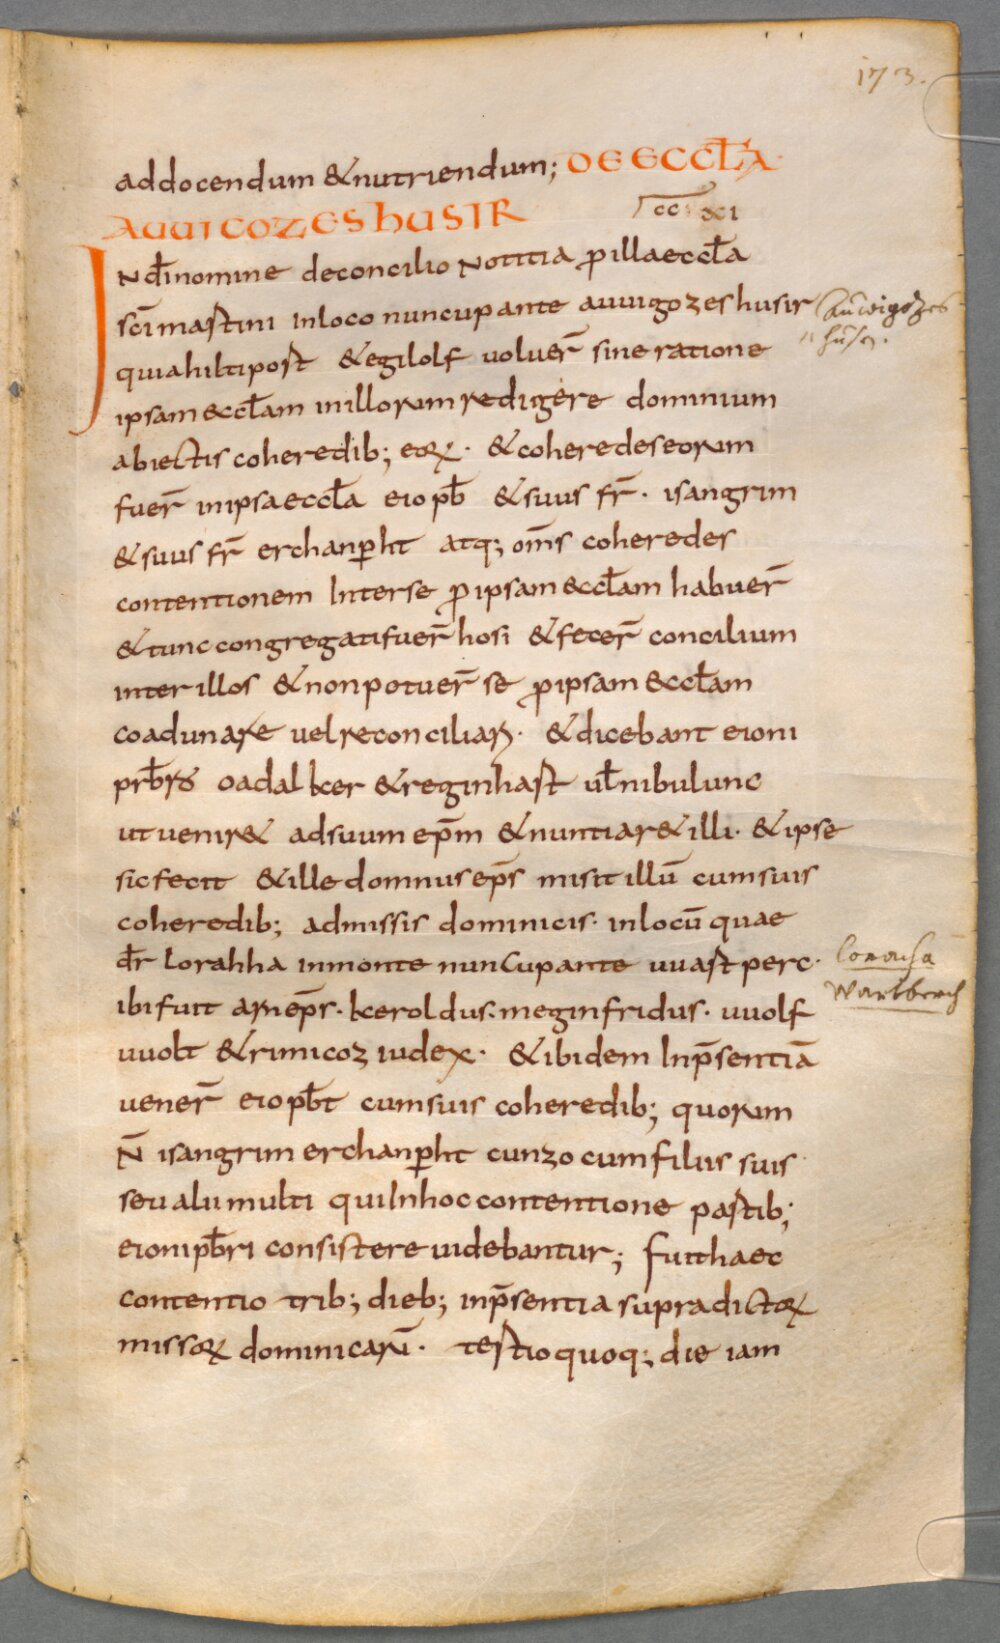 173.
addocendum & nutriendum; DE ECCLA
AUUICOZESHUSIR
ccxci
IN dī nomine de concilio Notitia p illa eccła
scī mastini in loco nuncupante auuigozeshusir
Auwigozes
husen.
quia hiltipost & egilolf uoluer̄ sine ratione
ipsam eccłam in illorum redigere dominium
abiectis coheredib; eoꝝ. & coheredes eorum
fuer̄ in ipsa eccła eio pb̄ & suus fr̄. isangrim
& suus fr̄ erchanꝑht atq; om̄s coheredes
contentionem Inter se p ipsam eccłam habuer̄
& tunc congregati fuer̄ hosi & fecer̄ concilium
inter illos & non potuer̄ se p ipsam eccłam
coadunare uel reconciliarꝫ. & dicebant eioni
prb̄ro oadalker & reginhast uł nibulunc
ut uenir& ad suum ep̄m & nuntiar& illi. & ipse
sic fecit & ille domnus ep̄s misit illū cum suis
coheredib; ad missis dominicis. in locū quae
dr̄ lorahha in monte nuncupante uuastperc.
Loracha
Wartberch
ibi fuit arn ep̄s. keroldus. meginfridus. uuolf
uuolt & rimicoz iudex. & ibidem In p̄sentiā
uener̄ eio pb̄t cum suis coheredib; quorum
N̄ isangrim erchanꝑht cunzo cum filiis suis
seu alii multi qui In hoc contentione pastib;
eioni pb̄ri consistere uidebantur; fuit haec
contentio trib; dieb; in p̄sentia supradictoꝝ
missoꝝ dominicarū. testio quoq; die iam